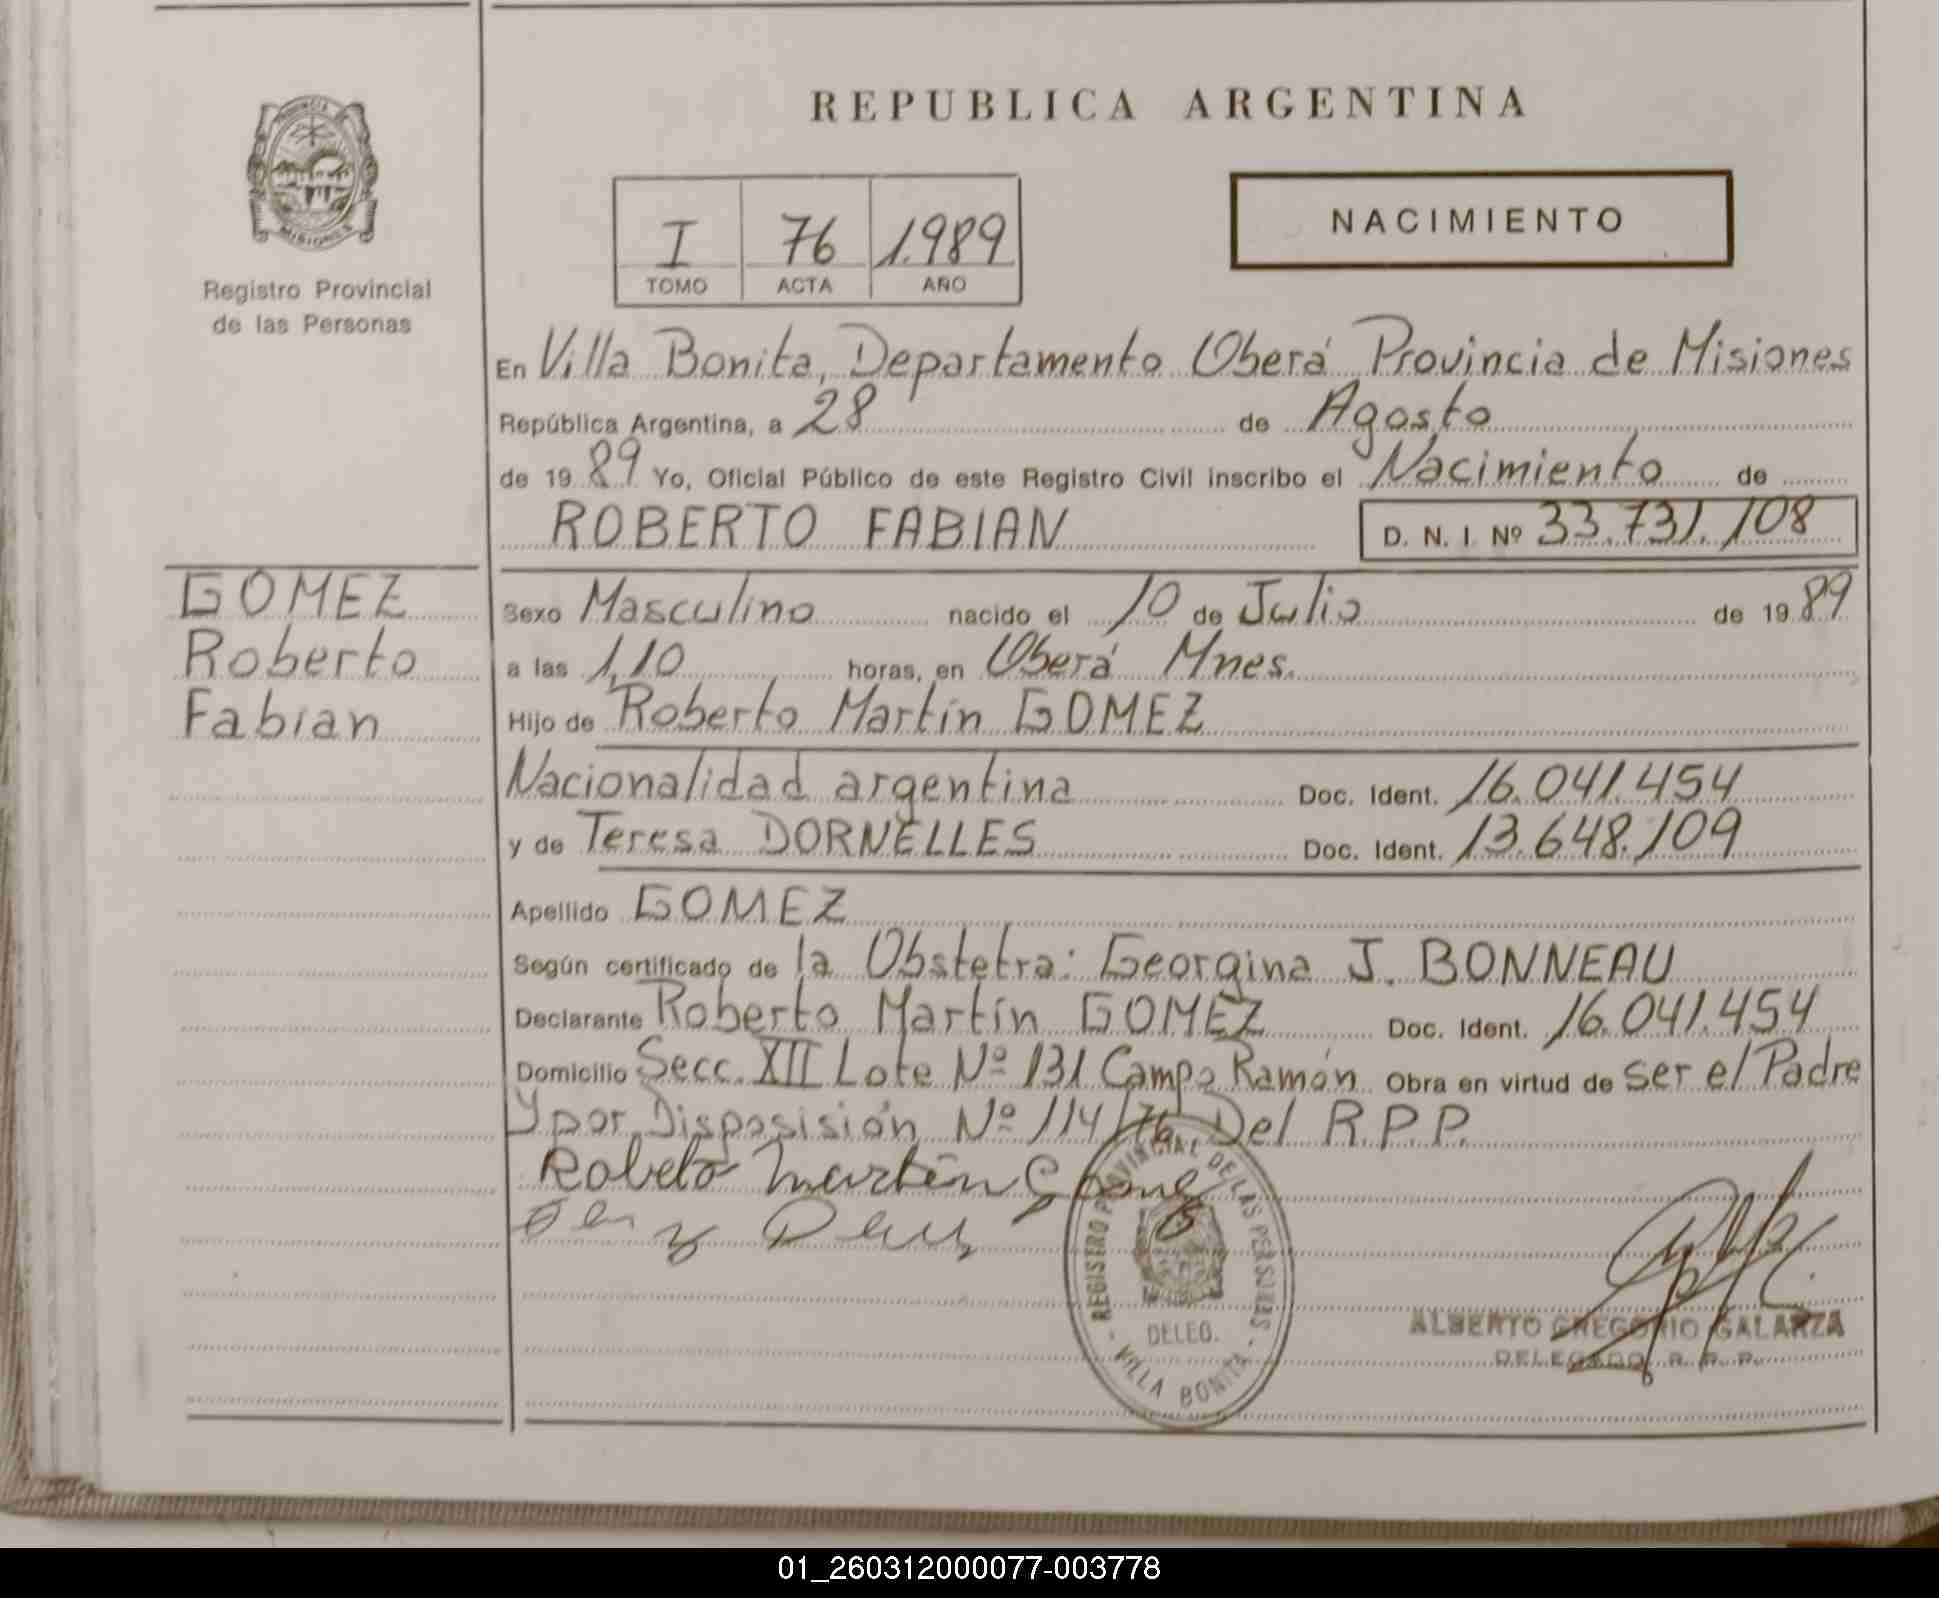 REPUBLICA ARGENTINA
PROVINCIA
MISIONES
Registro Provincial
de las Personas
I 76 1.989
TOMO ACTA AÑO
NACIMIENTO
En Villa Bonita, Departamento Oberá Provincia de Misiones
República Argentina, a 28 de Agosto
de 19 89 Yo, Oficial Público de este Registro Civil inscribo el Nacimiento de
ROBERTO FABIAN D. N. I. Nº 33.731.108
GOMEZ
Roberto
Fabian
Sexo Masculino nacido el 10 de Julio de 19 89
a las 1,10 horas, en Oberá Mnes.
Hijo de Roberto Martín GOMEZ
Nacionalidad argentina Doc. Ident. 16.041.454
y de Teresa DORNELLES Doc. Ident. 13.648.109
Apellido GOMEZ
Según certificado de la Obstetra: Georgina J. BONNEAU
Declarante Roberto Martín GOMEZ Doc. Ident. 16.041.454
Domicilio Secc. XII Lote Nº 131 Campo Ramón Obra en virtud de ser el Padre
Y por Disposisión Nº 114/76 Del R.P.P.
REGISTRO PROVINCIAL DE LAS PERSONAS
DELEG.
- VILLA BONITA -
ALBERTO GREGORIO GALARZA
DELEGADO R. P. P.
01_260312000077-003778